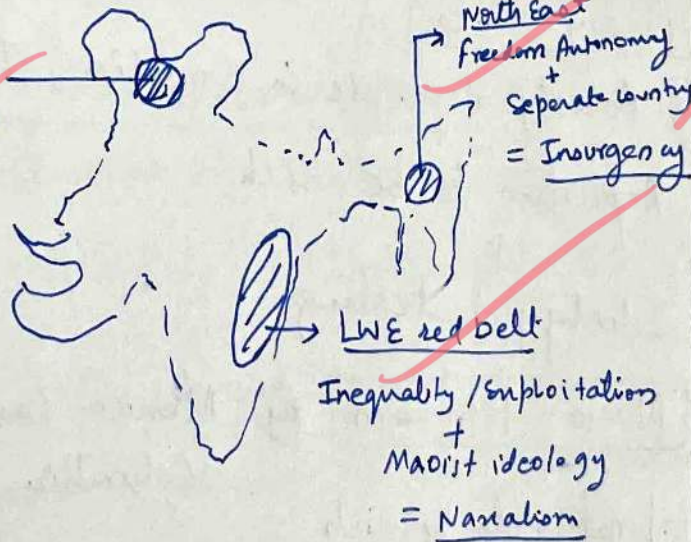 North East
freedom Autonomy
+
Seperate country
= Insurgency
LWE red belt
Inequality / Exploitation
+
Maoist ideology
= Naxalism